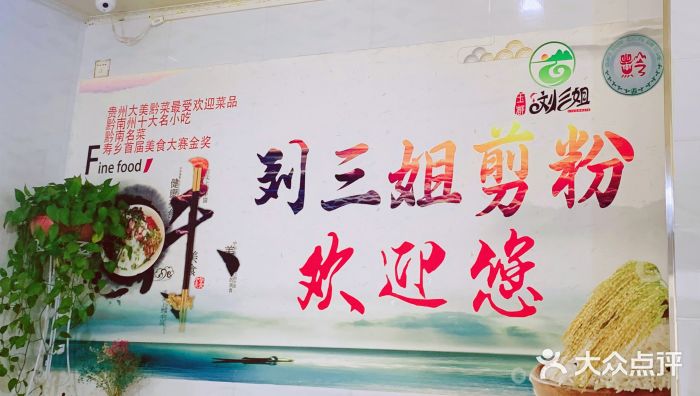 贵州大美黔菜最受欢迎菜品
黔南州十大名小吃
黔南名菜
寿乡首届美食大赛金奖
Fine food
味
刘三姐
刘三姐剪粉
欢迎您
大众点评